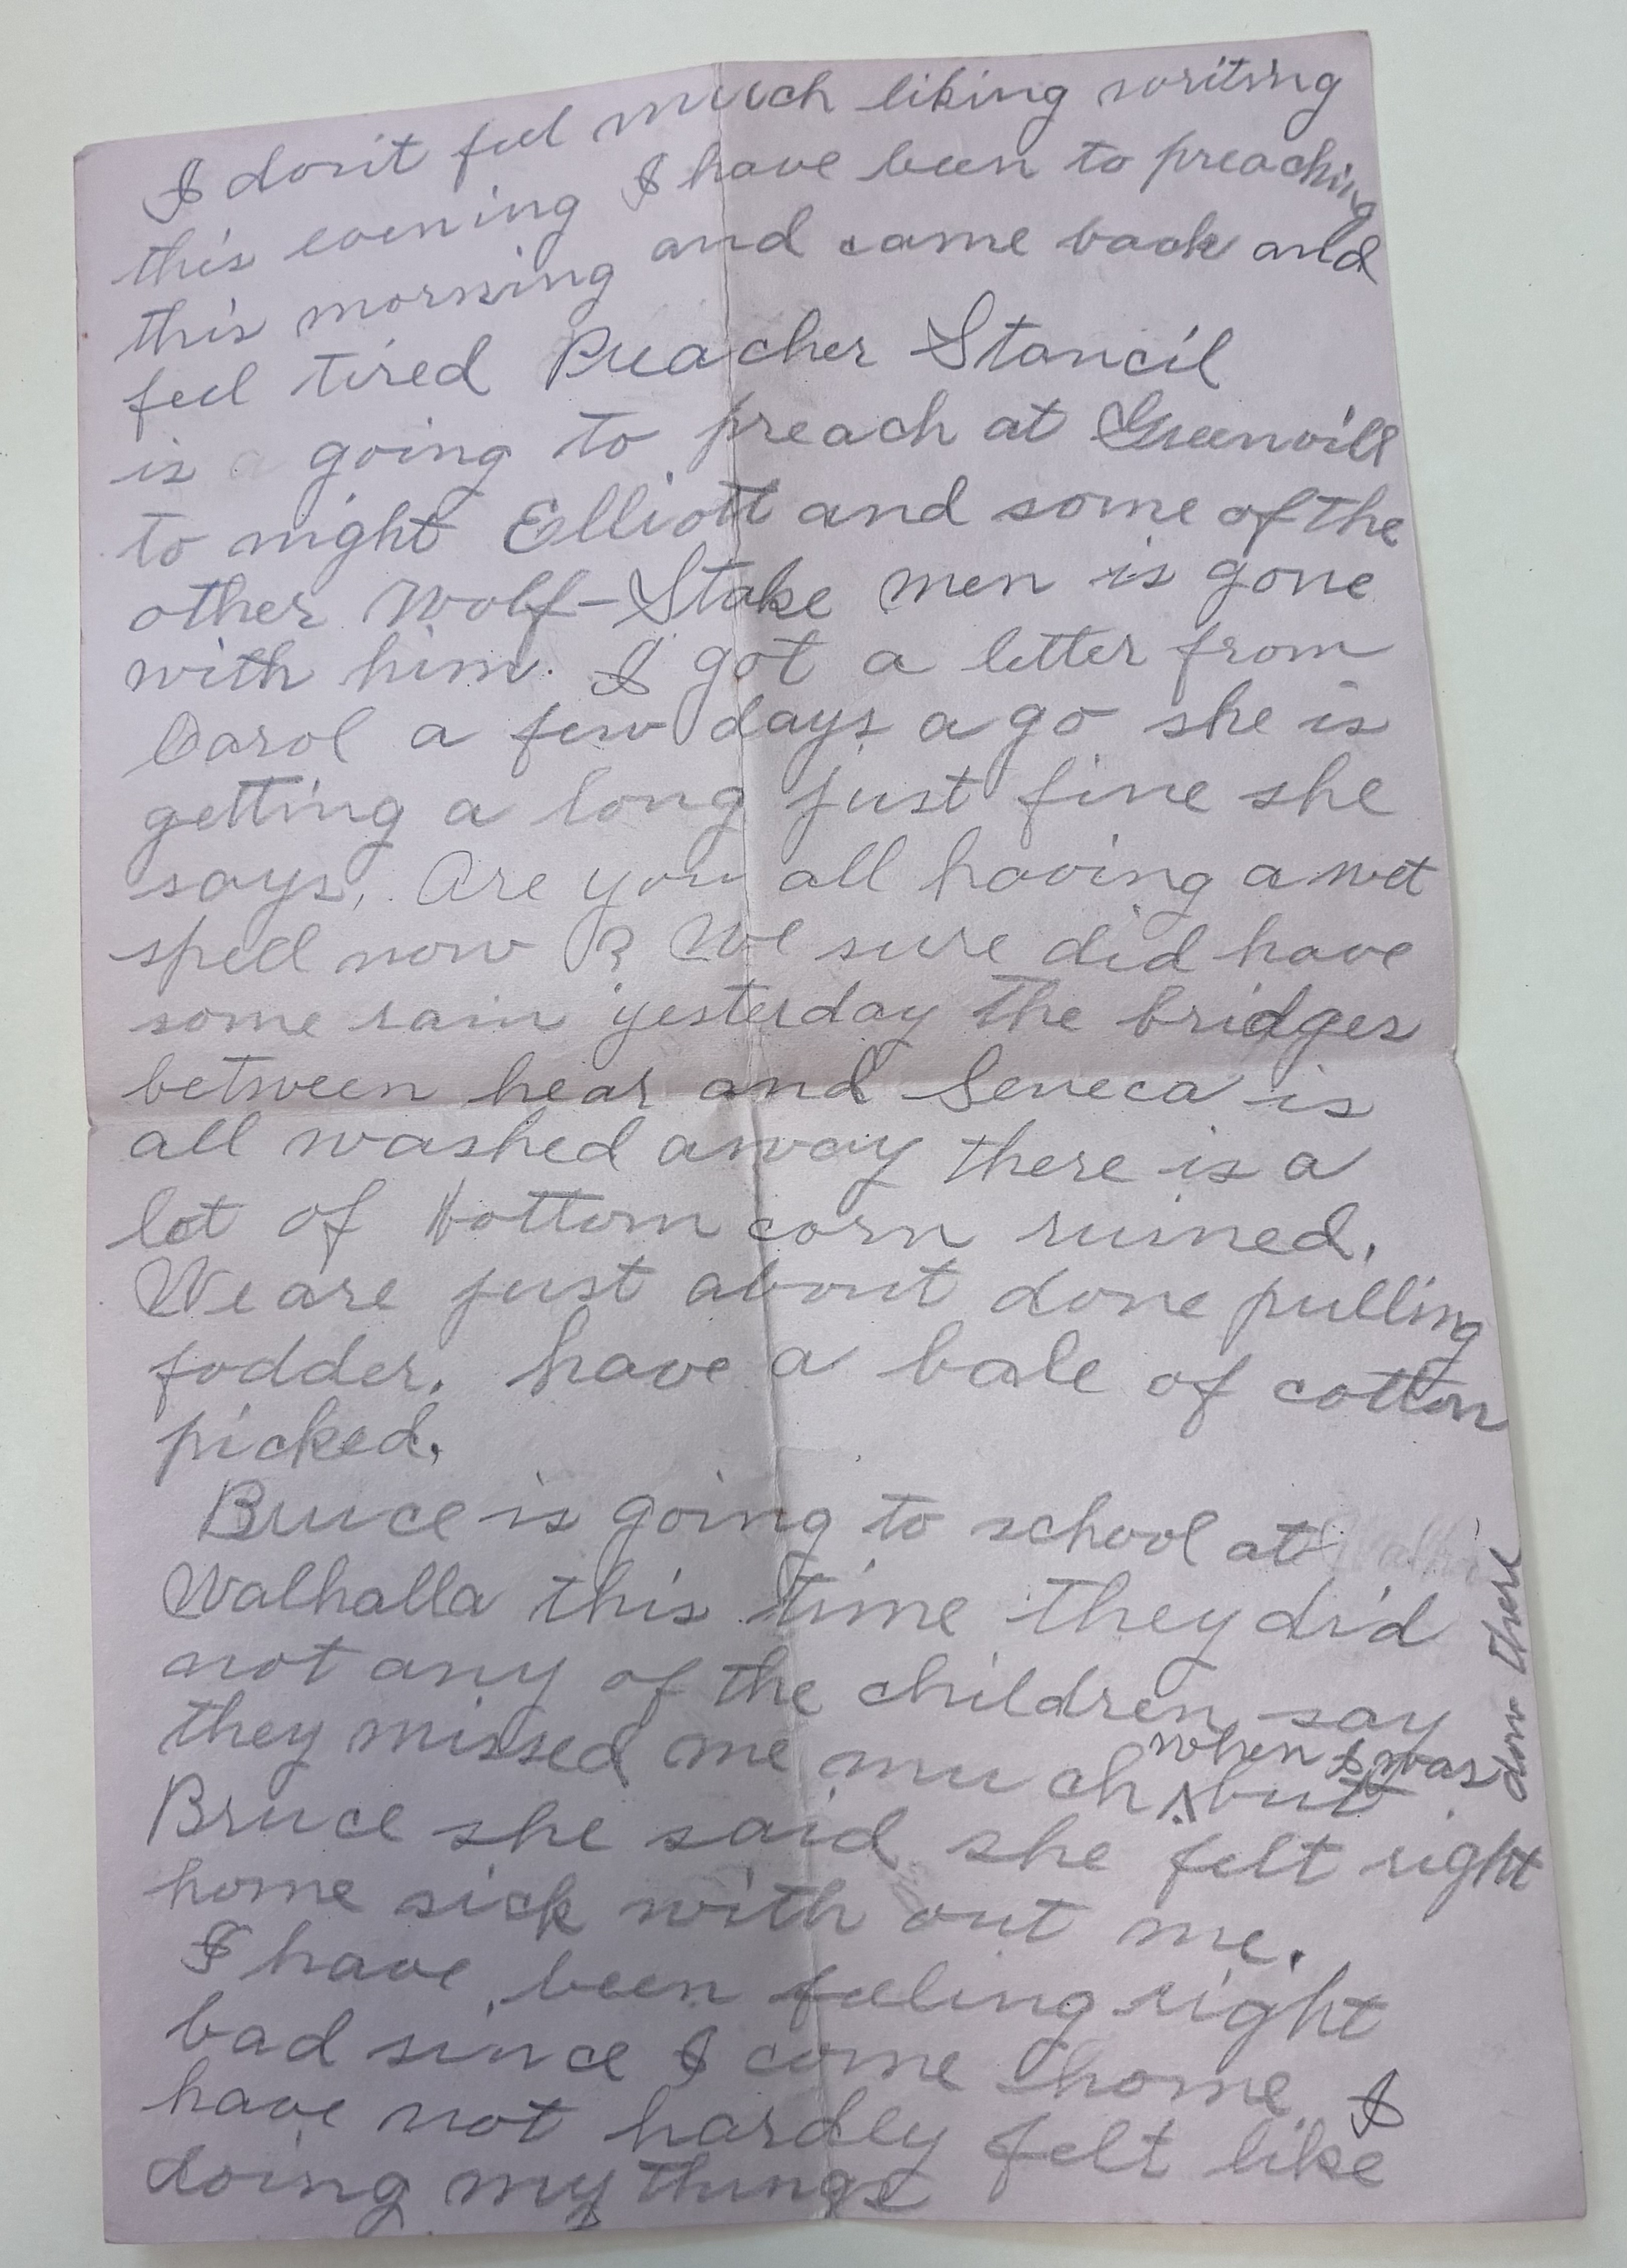 I don't feel much liking writing
this evening I have been to preaching
this morning and came back and
feel tired Preacher Stancil
is a going to preach at Greenvill
to night Elliott and some of the
other Wolf-Stake men is gone
with him. I got a letter from
Carol a few days a go she is
getting a long just fine she
says. Are you all having a wet
spell now ? We sure did have
some rain yesterday the bridges
between hear and Seneca is
all washed away there is a
lot of bottom corn ruined.
We are just about done pulling
fodder. have a bale of cotton
picked.
Bruce is going to school at
Walhalla this time they did
not any of the children say
they missed me much when I was down there but
Bruce she said she felt right
home sick with out me.
I have been feeling right
bad since I come home I
have not hardly felt like
doing my things